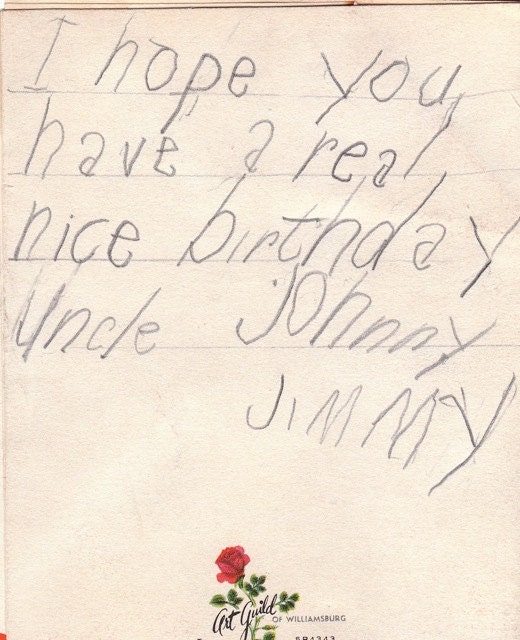 I hope you
have a real
nice birthday
Uncle Johnny
JiMMY
Art Guild OF WILLIAMSBURG
5B4343